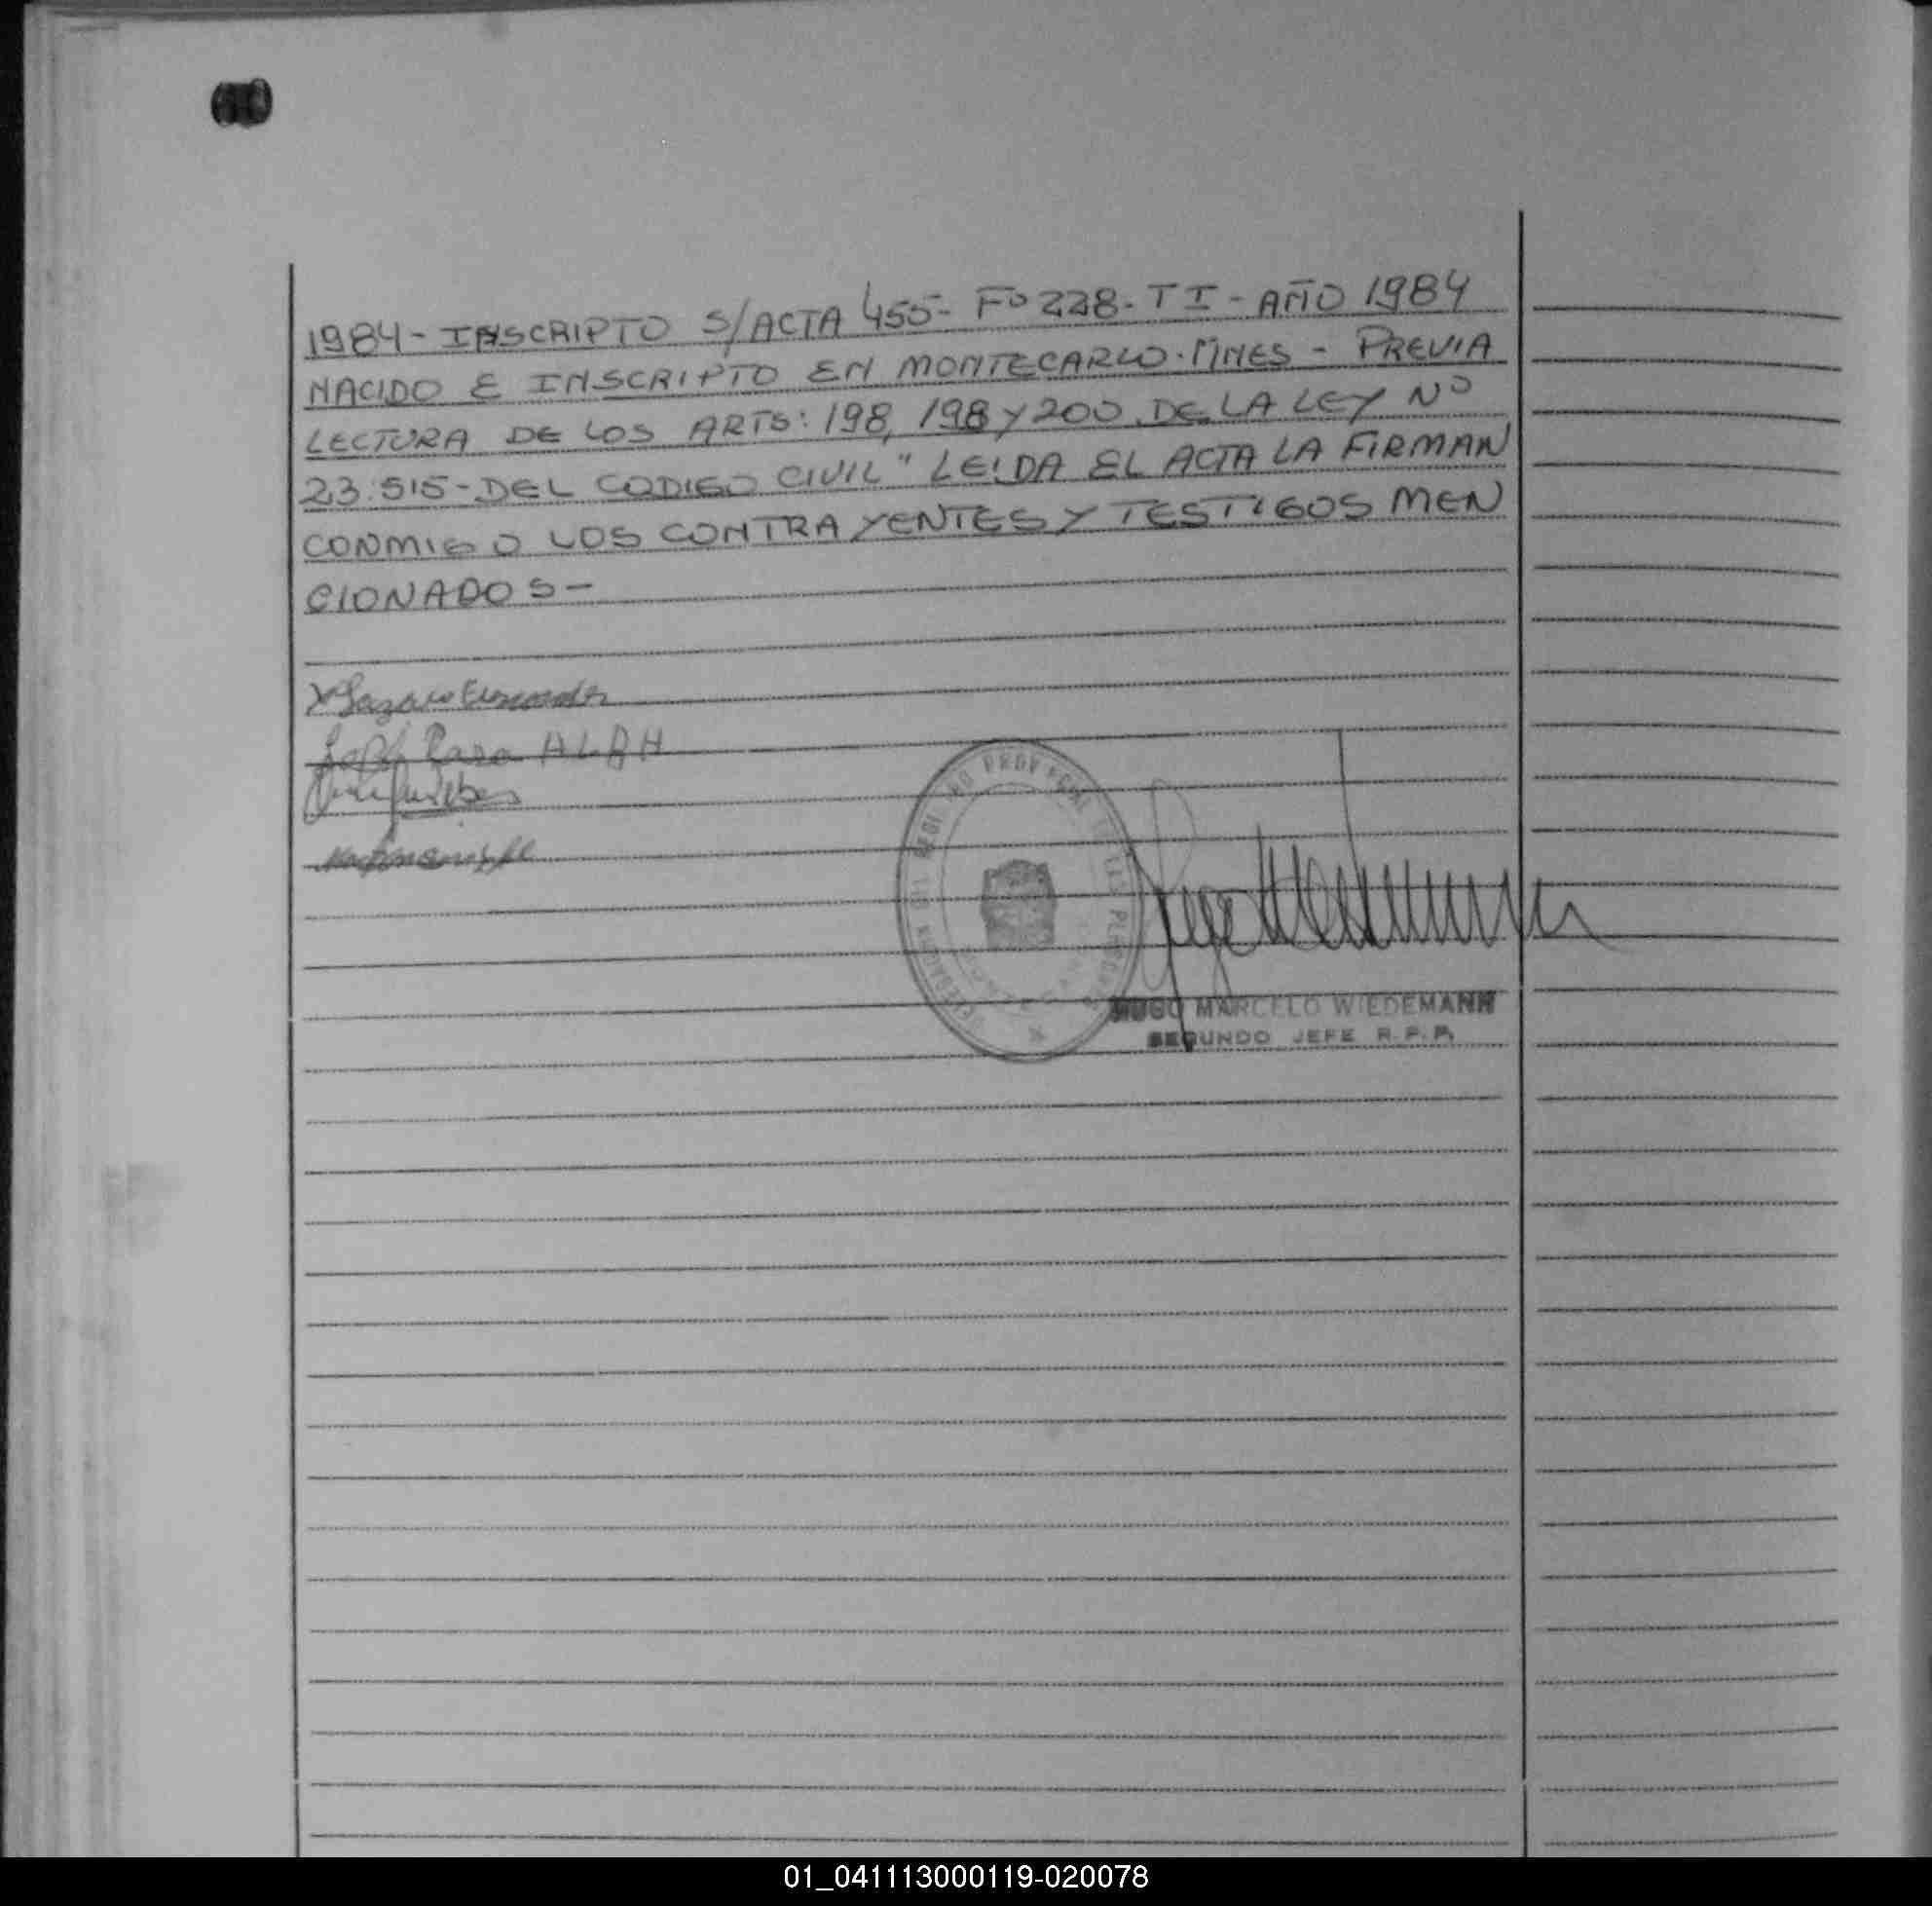 1984- INSCRIPTO S/ACTA 455- Fº 228- T I - AÑO 1984
NACIDO E INSCRIPTO EN MONTECARLO. MNES - PREVIA
LECTURA DE LOS ARTS: 198, 198 y 200 DE LA LEY Nº
23.515- DEL CODIGO CIVIL" LEIDA EL ACTA LA FIRMAN
CONMIGO LOS CONTRAYENTES Y TESTIGOS MEN
CIONADOS -
Rosa ALBA
HUGO MARCELO WIEDEMANN
SEGUNDO JEFE R.P.P.
01_041113000119-020078